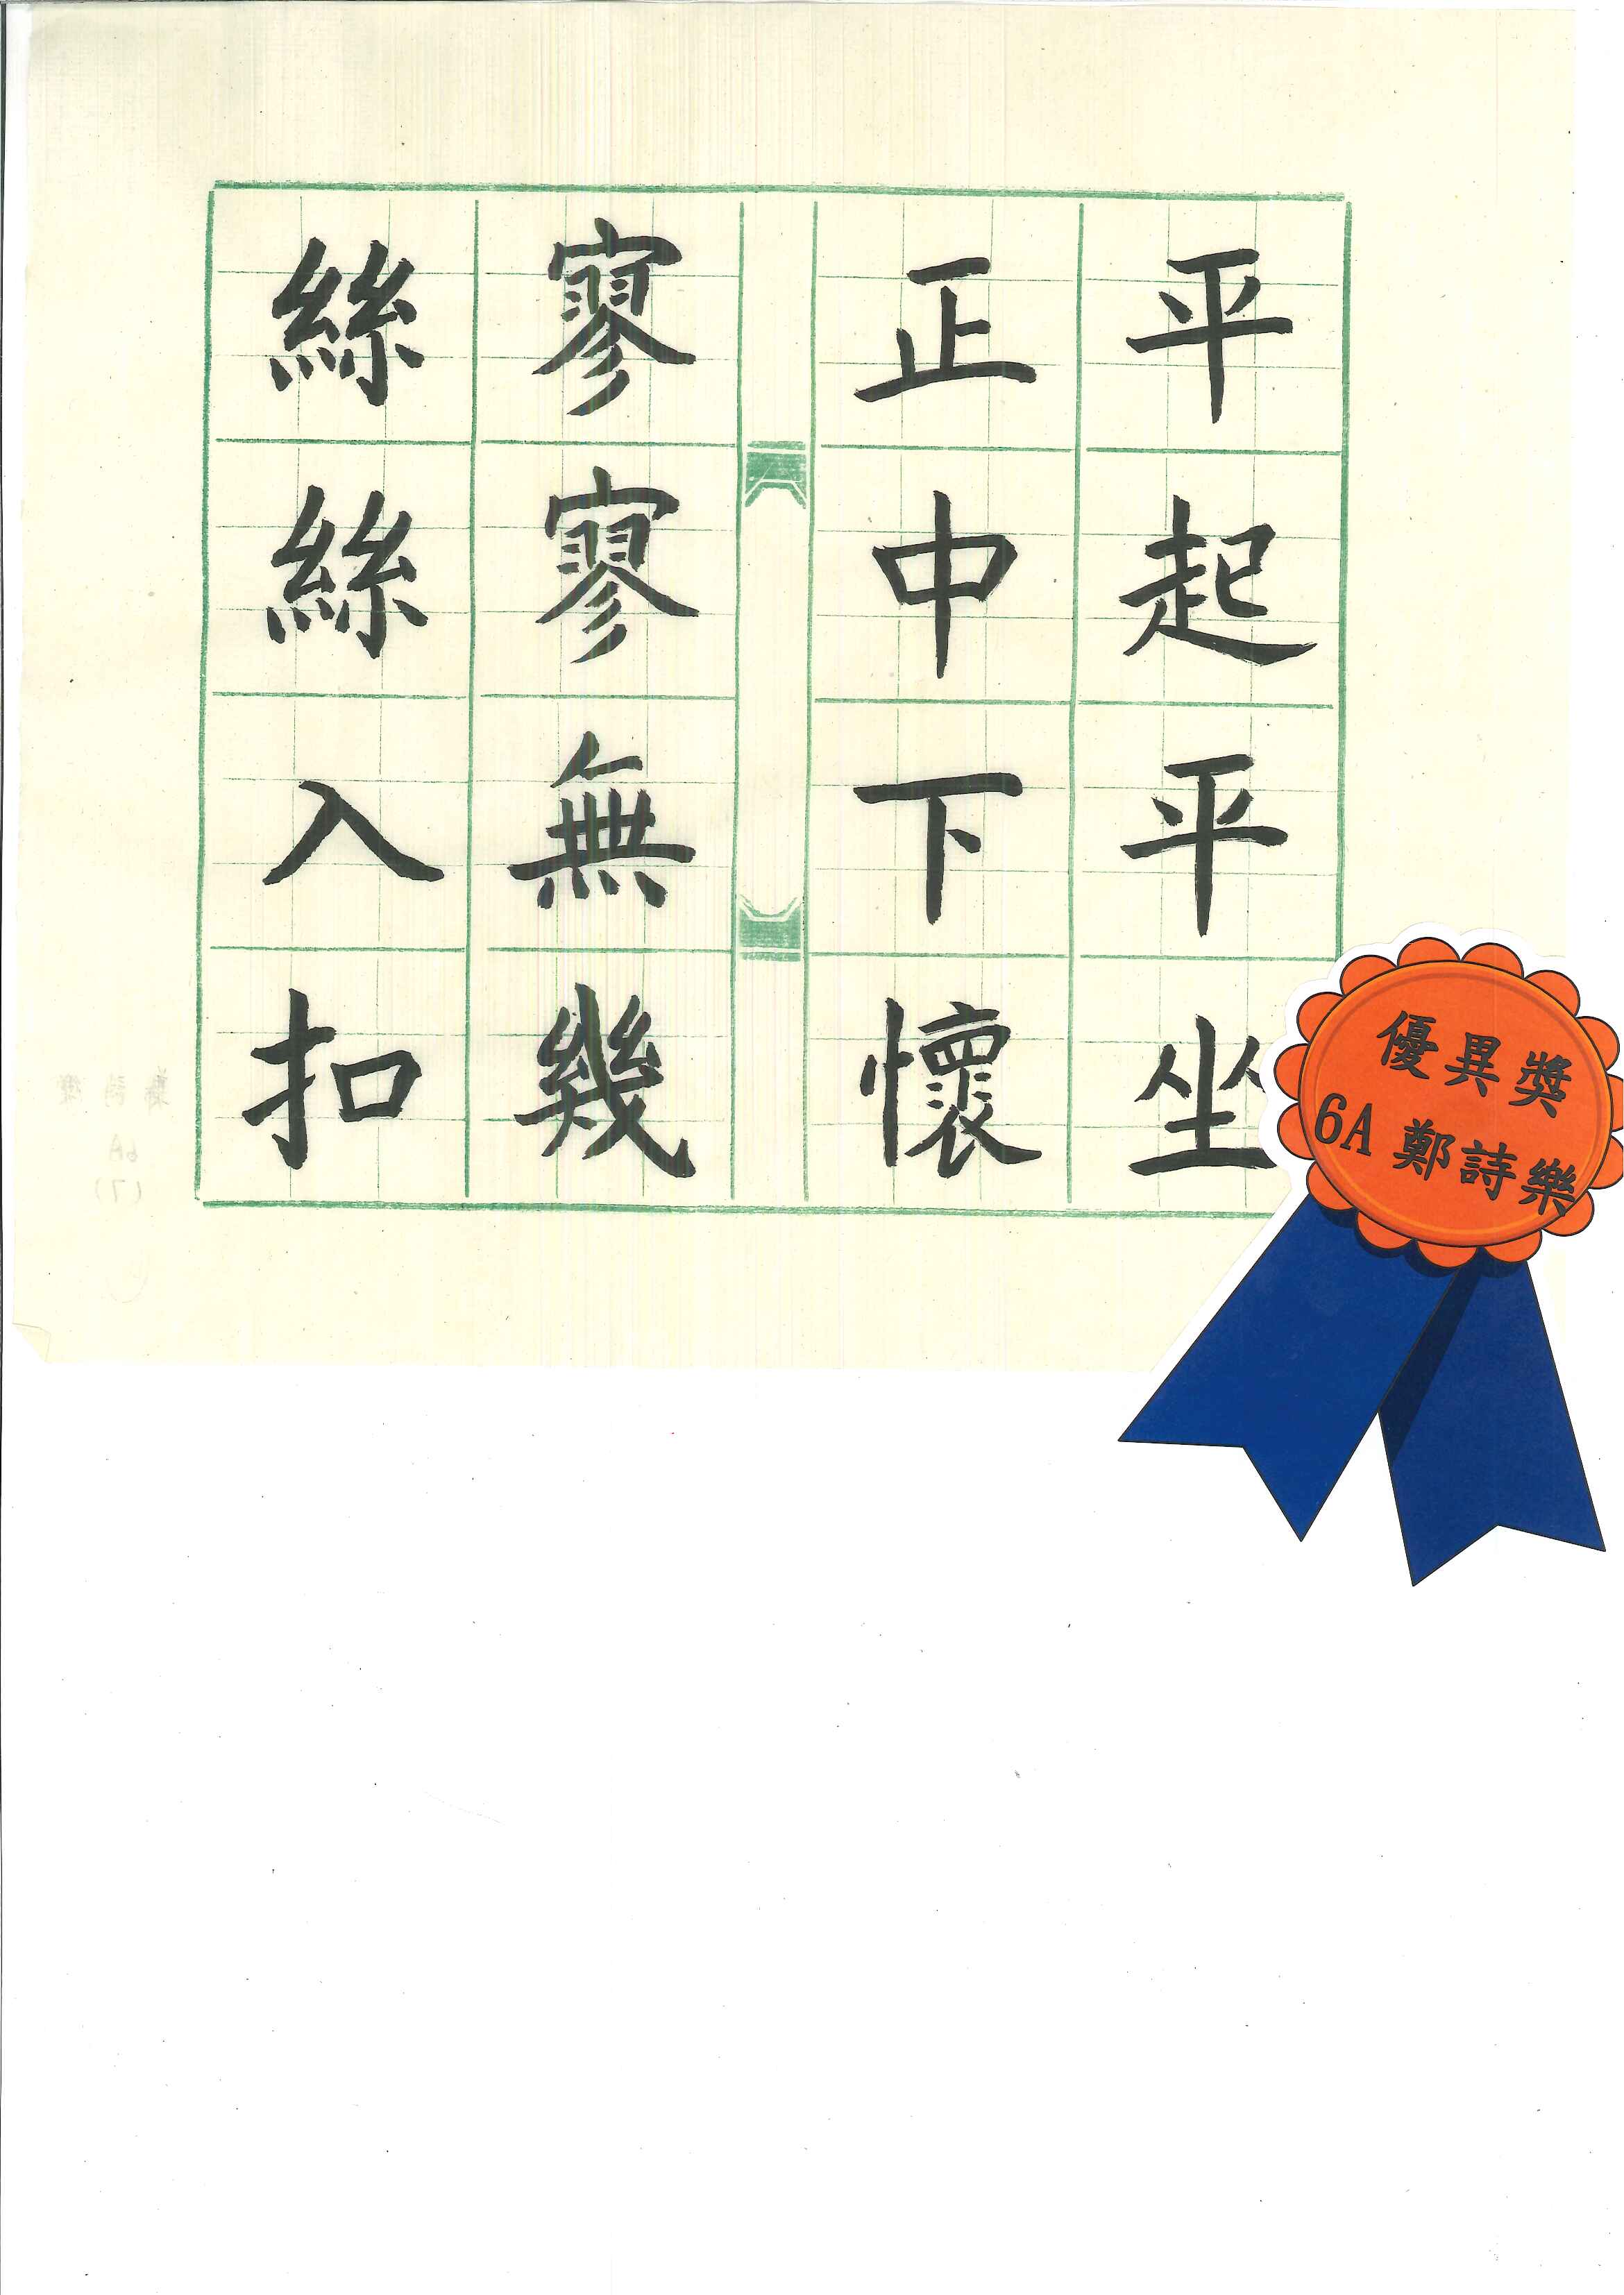 平起平坐
正中下懷
寥寥無幾
絲絲入扣
優異獎
6A 鄭詩樂